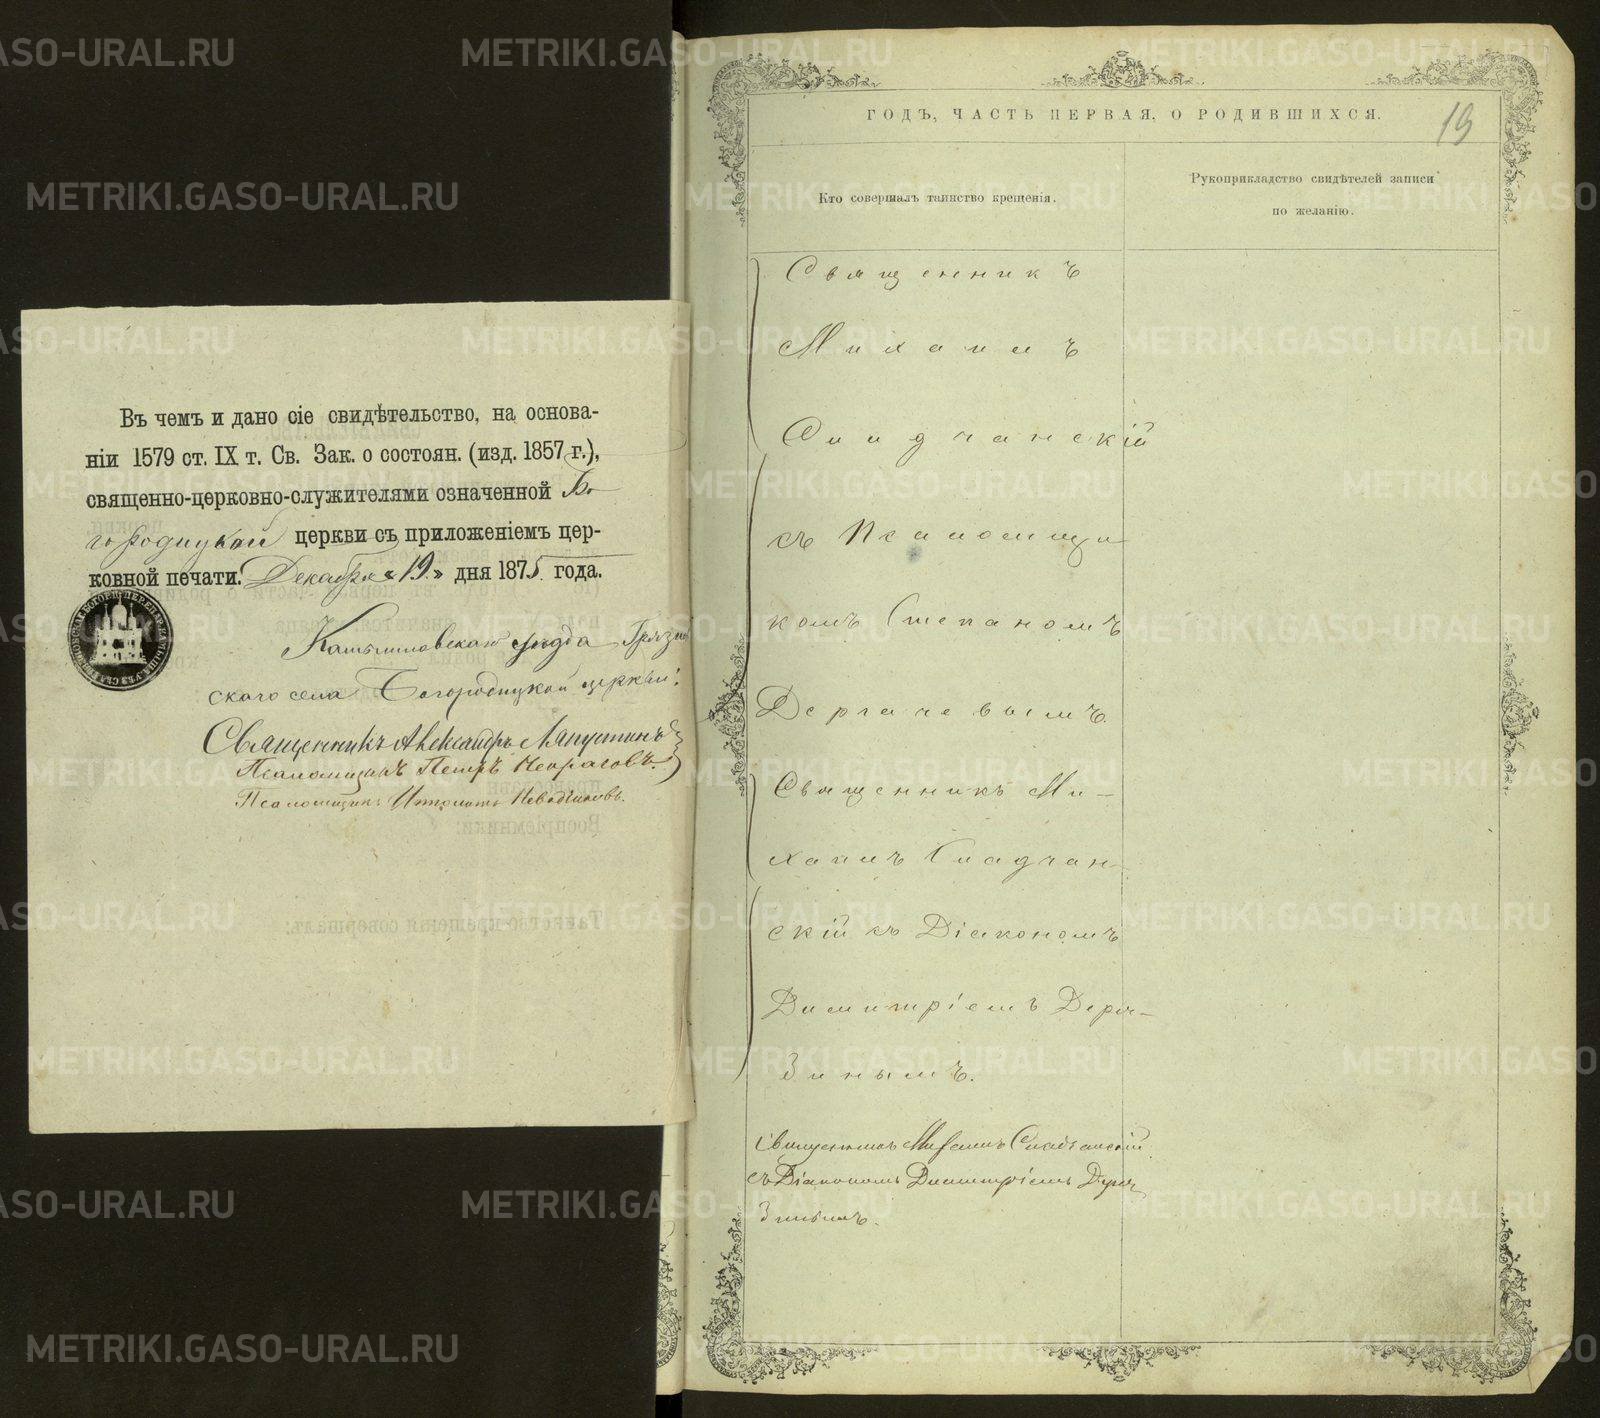 Въ чемъ и дано сіе свидѣтельство, на основа-
ніи 1579 ст. IX т. Св. Зак. о состоян. (изд. 1857 г.),
священно-церковно-служителями означенной Бо-
городицкой церкви съ приложеніемъ цер-
ковной печати. Декабря «19» дня 1875 года.
Камышловскаго уѣзда Грязнов-
скаго села Богородицкой церкви:
Священникъ Александръ Лапустинъ
Псаломщикъ Петръ
Псаломщикъ Ипполитъ
ГОДЪ, ЧАСТЬ ПЕРВАЯ, О РОДИВШИХСЯ.
19
Кто совершалъ таинство крещенія.
Рукоприкладство свидѣтелей записи
по желанію.
Священникъ
Михаилъ
Сладчанскій
съ Псаломщи-
комъ Степаномъ
Дергачевымъ
Священникъ Ми-
хаилъ Сладчан-
скій съ Діакономъ
Димитріемъ Деря-
зинымъ.
Священникъ Михаилъ Сладчанскій
съ Діакономъ Димитріемъ Деря-
зинымъ.
METRIKI.GASO-URAL.RU